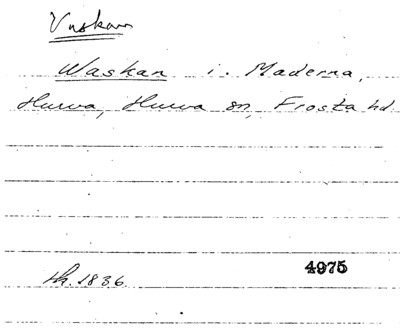 Vaskan
Waskan i. Maderna,
Hurva, Hurva sn, Frosta hd.
sk. 1836.
4975